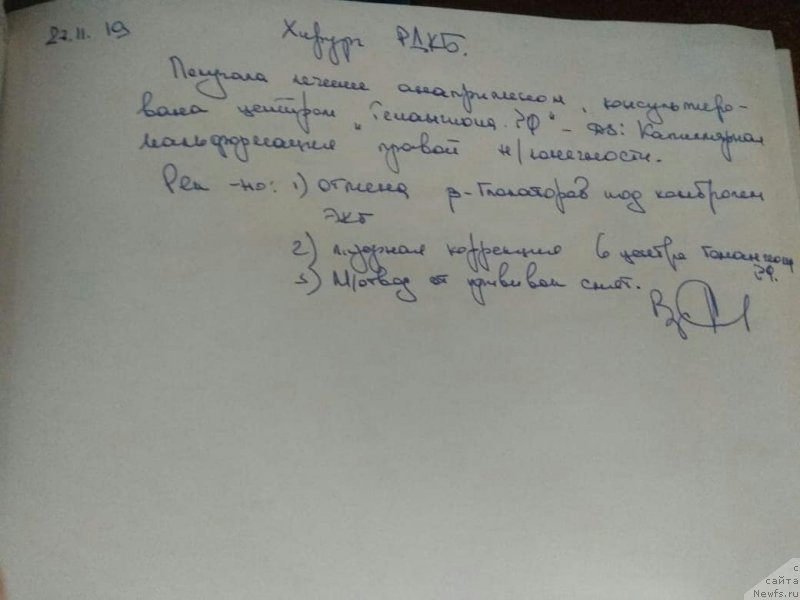 27.11.19 Хирург РДКБ.
Получала лечение анаприлином, консультиро-
вана центром "Гемангиома РФ" - DS: Капиллярная
мальформация правой н/конечности.
Рек-но: 1) отмена β-блокаторов под контролем
ЭКГ
2) лазерная коррекция в центре Гемангиом
РФ.
3) М/отвод от прививок снят.
с
сайта
Newfs.ru